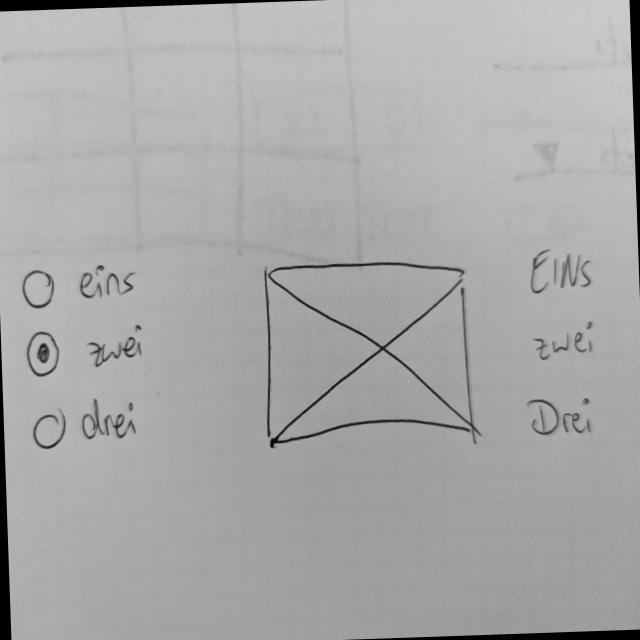 eins
zwei
drei
EINS
zwei
Drei